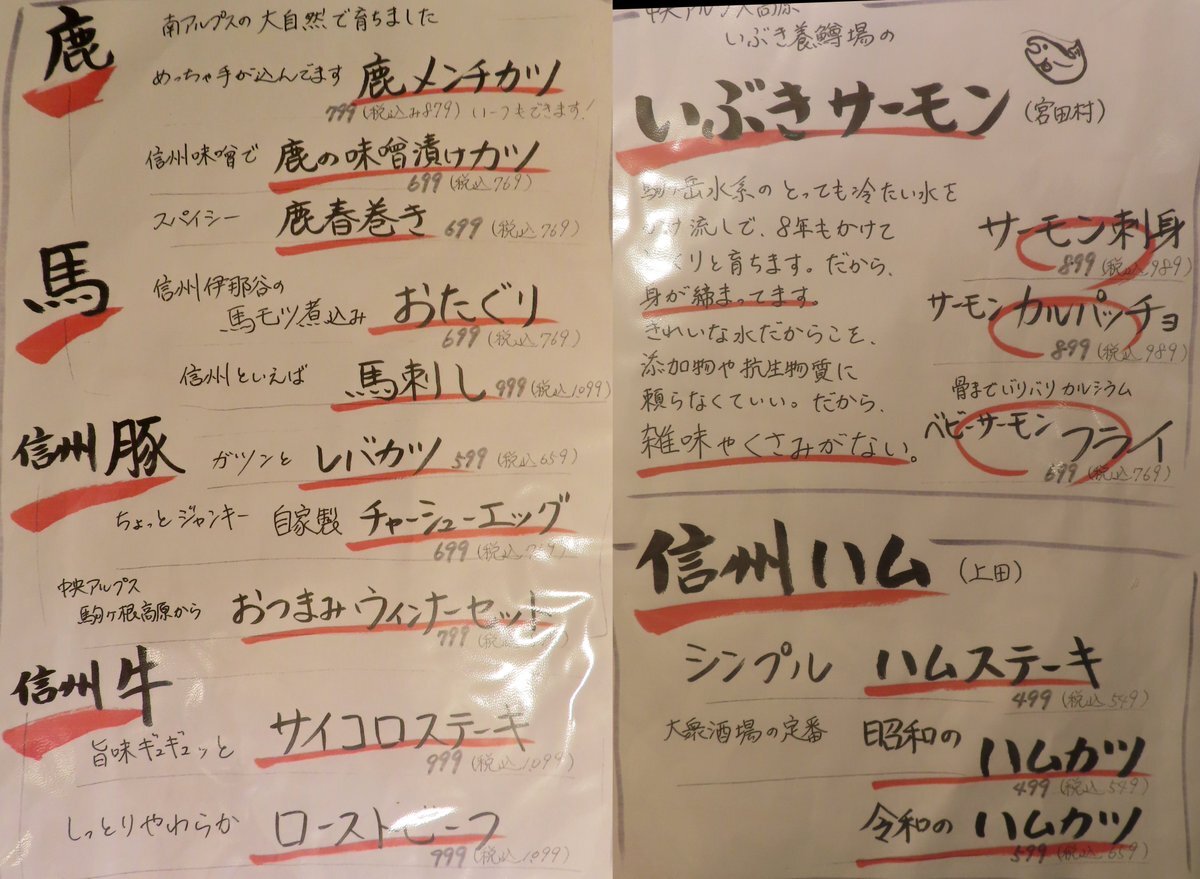 鹿
南アルプスの大自然で育ちました
めっちゃ手が込んでます 鹿メンチカツ
799(税込み879) いつもできます!
信州味噌で 鹿の味噌漬けカツ
699(税込769)
スパイシー 鹿春巻き 699(税込769)
馬
信州伊那谷の
馬モツ煮込み おたぐり
699(税込769)
信州といえば 馬刺し 999(税込1099)
信州豚 ガツンと レバカツ 599(税込659)
ちょっとジャンキー 自家製 チャーシューエッグ
699(税込769)
中央アルプス
駒ヶ根高原から おつまみウィンナーセット
799(税込
信州牛
旨味ギュギュッと サイコロステーキ
999(税込1099)
しっとりやわらか ローストビーフ
999(税込1099)
中央アルプス
いぶき養鱒場の
いぶきサーモン (宮田村)
駒ヶ岳水系のとっても冷たい水を
け流しで、8年もかけて
くりと育ちます。だから、
身が締まってます。
きれいな水だからこそ、
添加物や抗生物質に
頼らなくていい。だから、
雑味やくさみがない。
サーモン刺身
899(税込989)
サーモンカルパッチョ
899(税込989)
骨までバリバリカルシウム
ベビーサーモンフライ
699(税込769)
信州ハム (上田)
シンプル ハムステーキ
499(税込549)
大衆酒場の定番 昭和の
ハムカツ
499(税込549)
令和の ハムカツ
599(税込659)